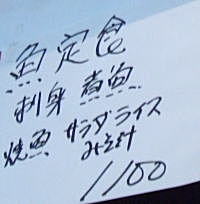 魚定食
刺身 煮魚
焼魚 サラダ ライス
みそ汁
1100